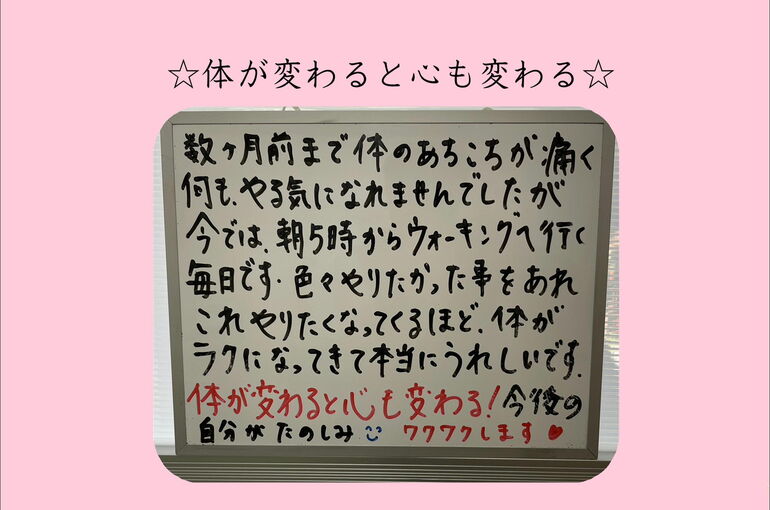 ☆体が変わると心も変わる☆
数ヶ月前まで体のあちこちが痛く
何も、やる気になれませんでしたが
今では、朝5時からウォーキングへ行く
毎日です。色々やりたかった事をあれ
これやりたくなってくるほど、体が
ラクになってきて本当にうれしいです。
体が変わると心も変わる!今後の
自分がたのしみ ワクワクします